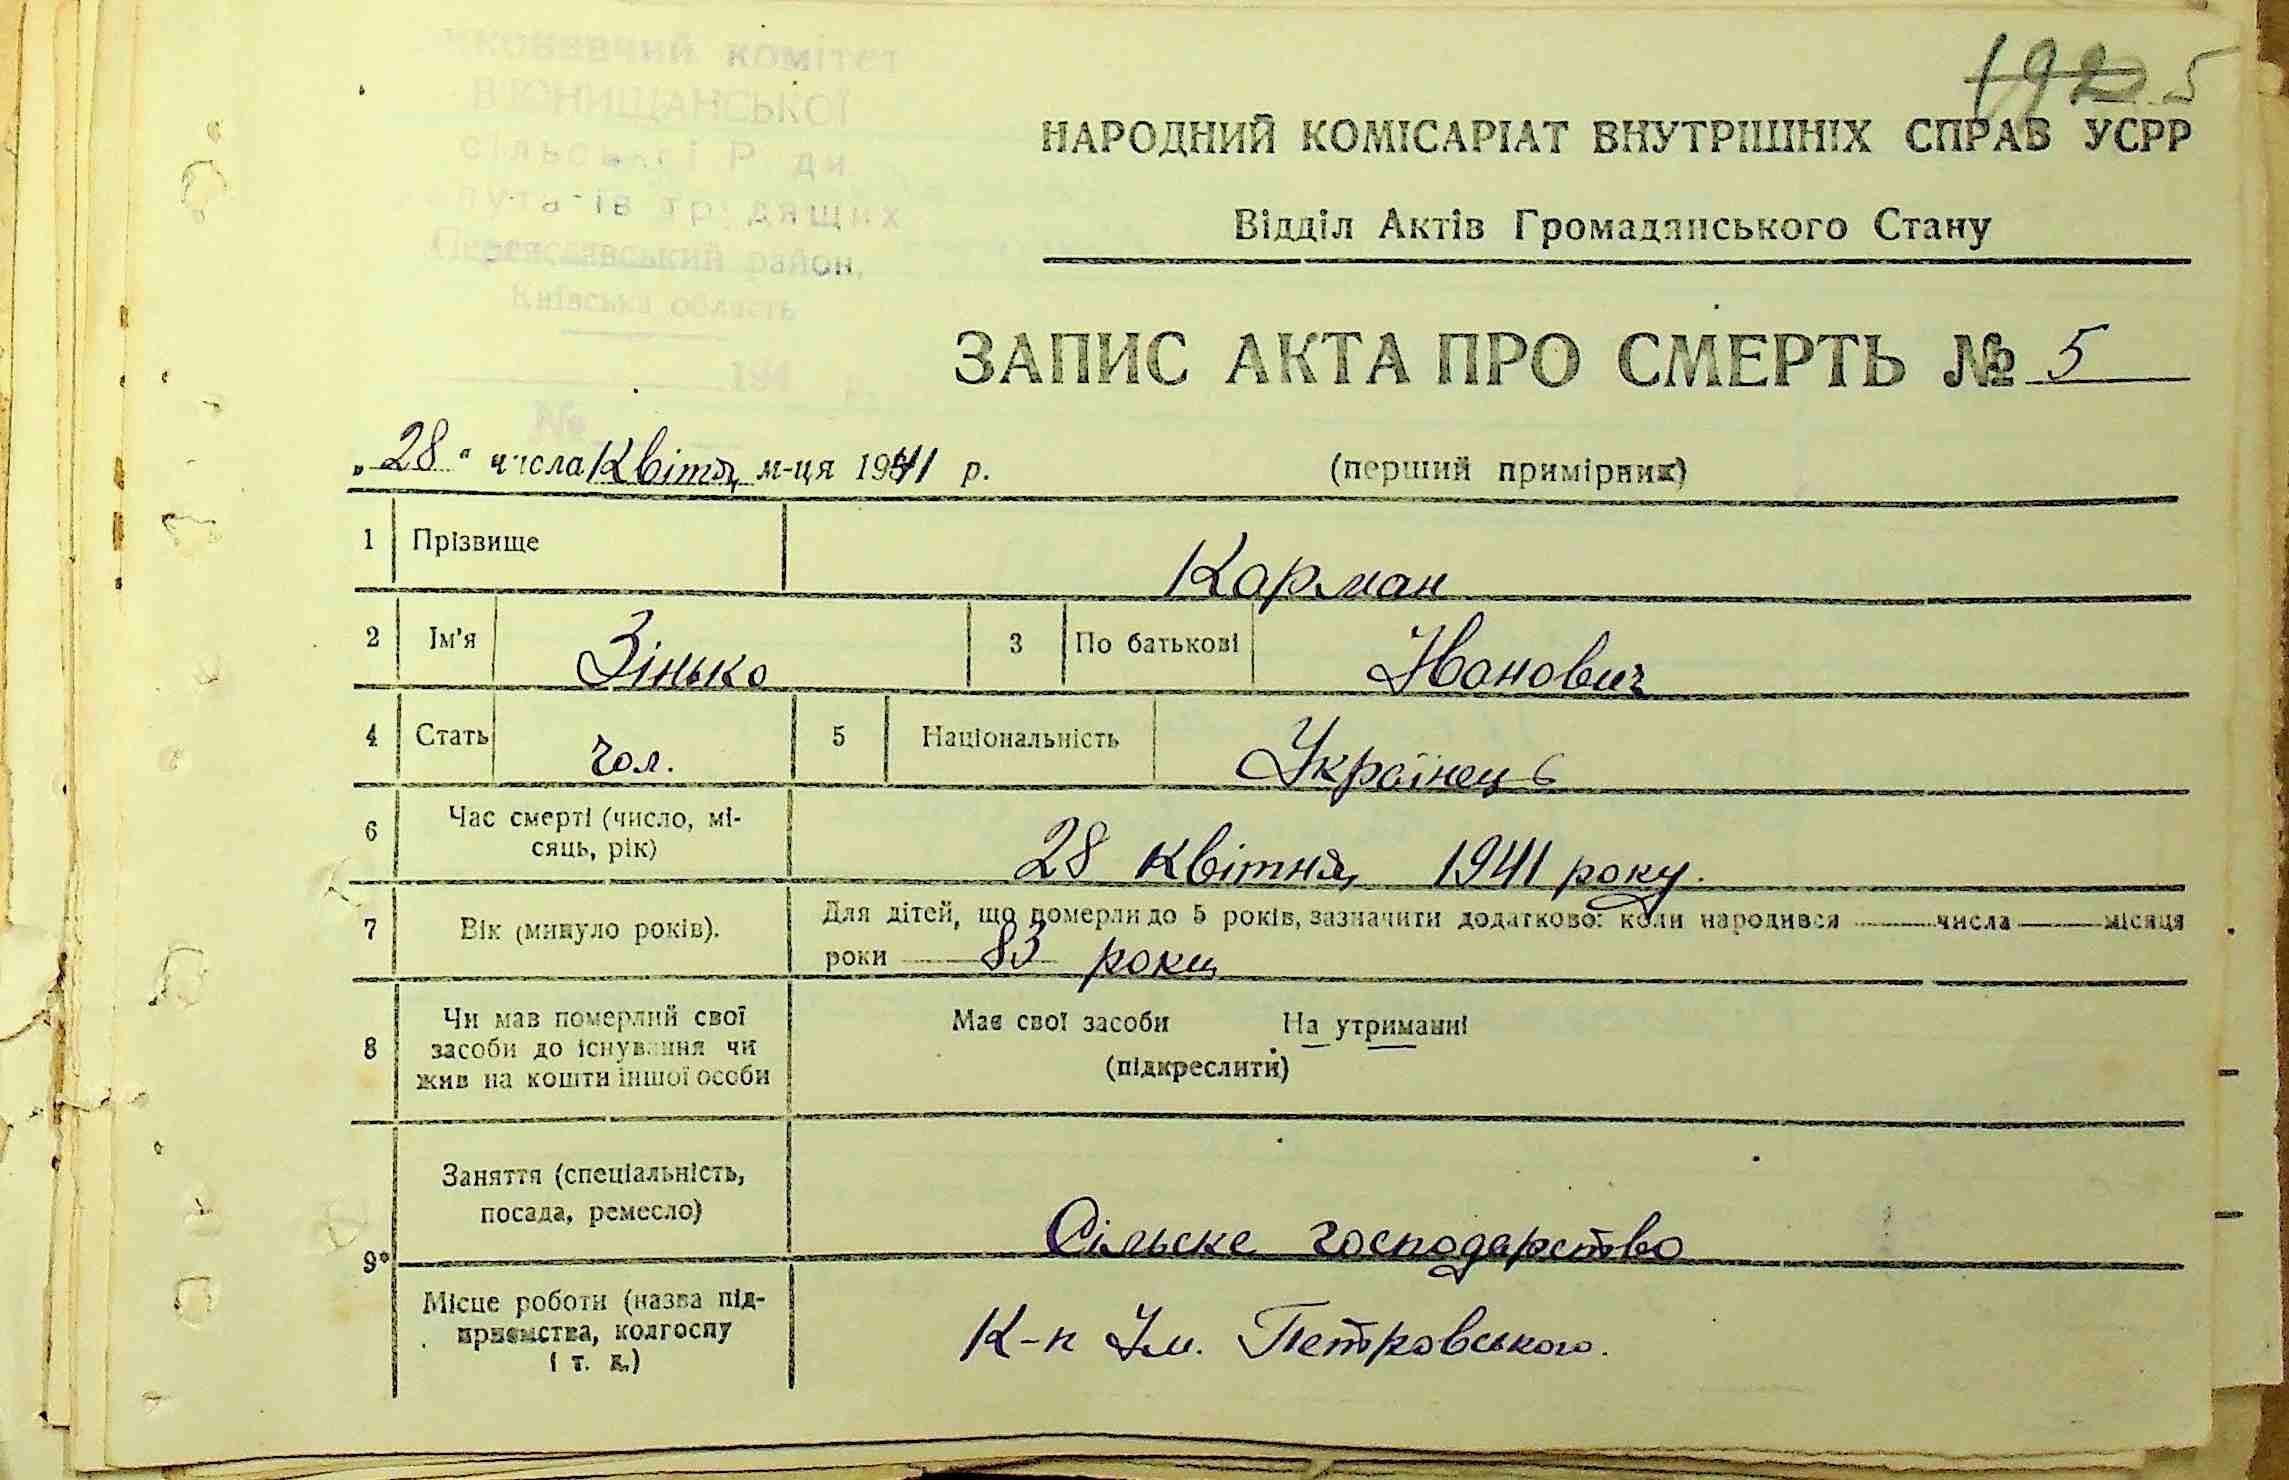 комітет
В'ЮНИЩАНСЬКОЇ
трудящих
Переяславський район,
Київська область
194 р.
№
5
НАРОДНИЙ КОМІСАРІАТ ВНУТРІШНІХ СПРАВ УСРР
Відділ Актів Громадянського Стану
ЗАПИС АКТА ПРО СМЕРТЬ № 5
„28“ числа Квітня м-ця 1941 р. (перший примірник)
1 Прізвище Карман
2 Ім'я Зінько 3 По батькові Іванович
4 Стать Чол. 5 Національність Українець
6 Час смерті (число, мі-
сяць, рік) 28 квітня 1941 року.
7 Вік (минуло років). Для дітей, що померли до 5 років, зазначити додатково: коли народився числа місяця
роки 83 роки
8 Чи мав померлий свої
засоби до існування чи
жив на кошти іншої особи
Має свої засоби На утриманні
(підкреслити)
9 Заняття (спеціальність,
посада, ремесло) Сільске господарство
Місце роботи (назва під-
приємства, колгоспу
і т. д.) К-п Ім. Петровського.